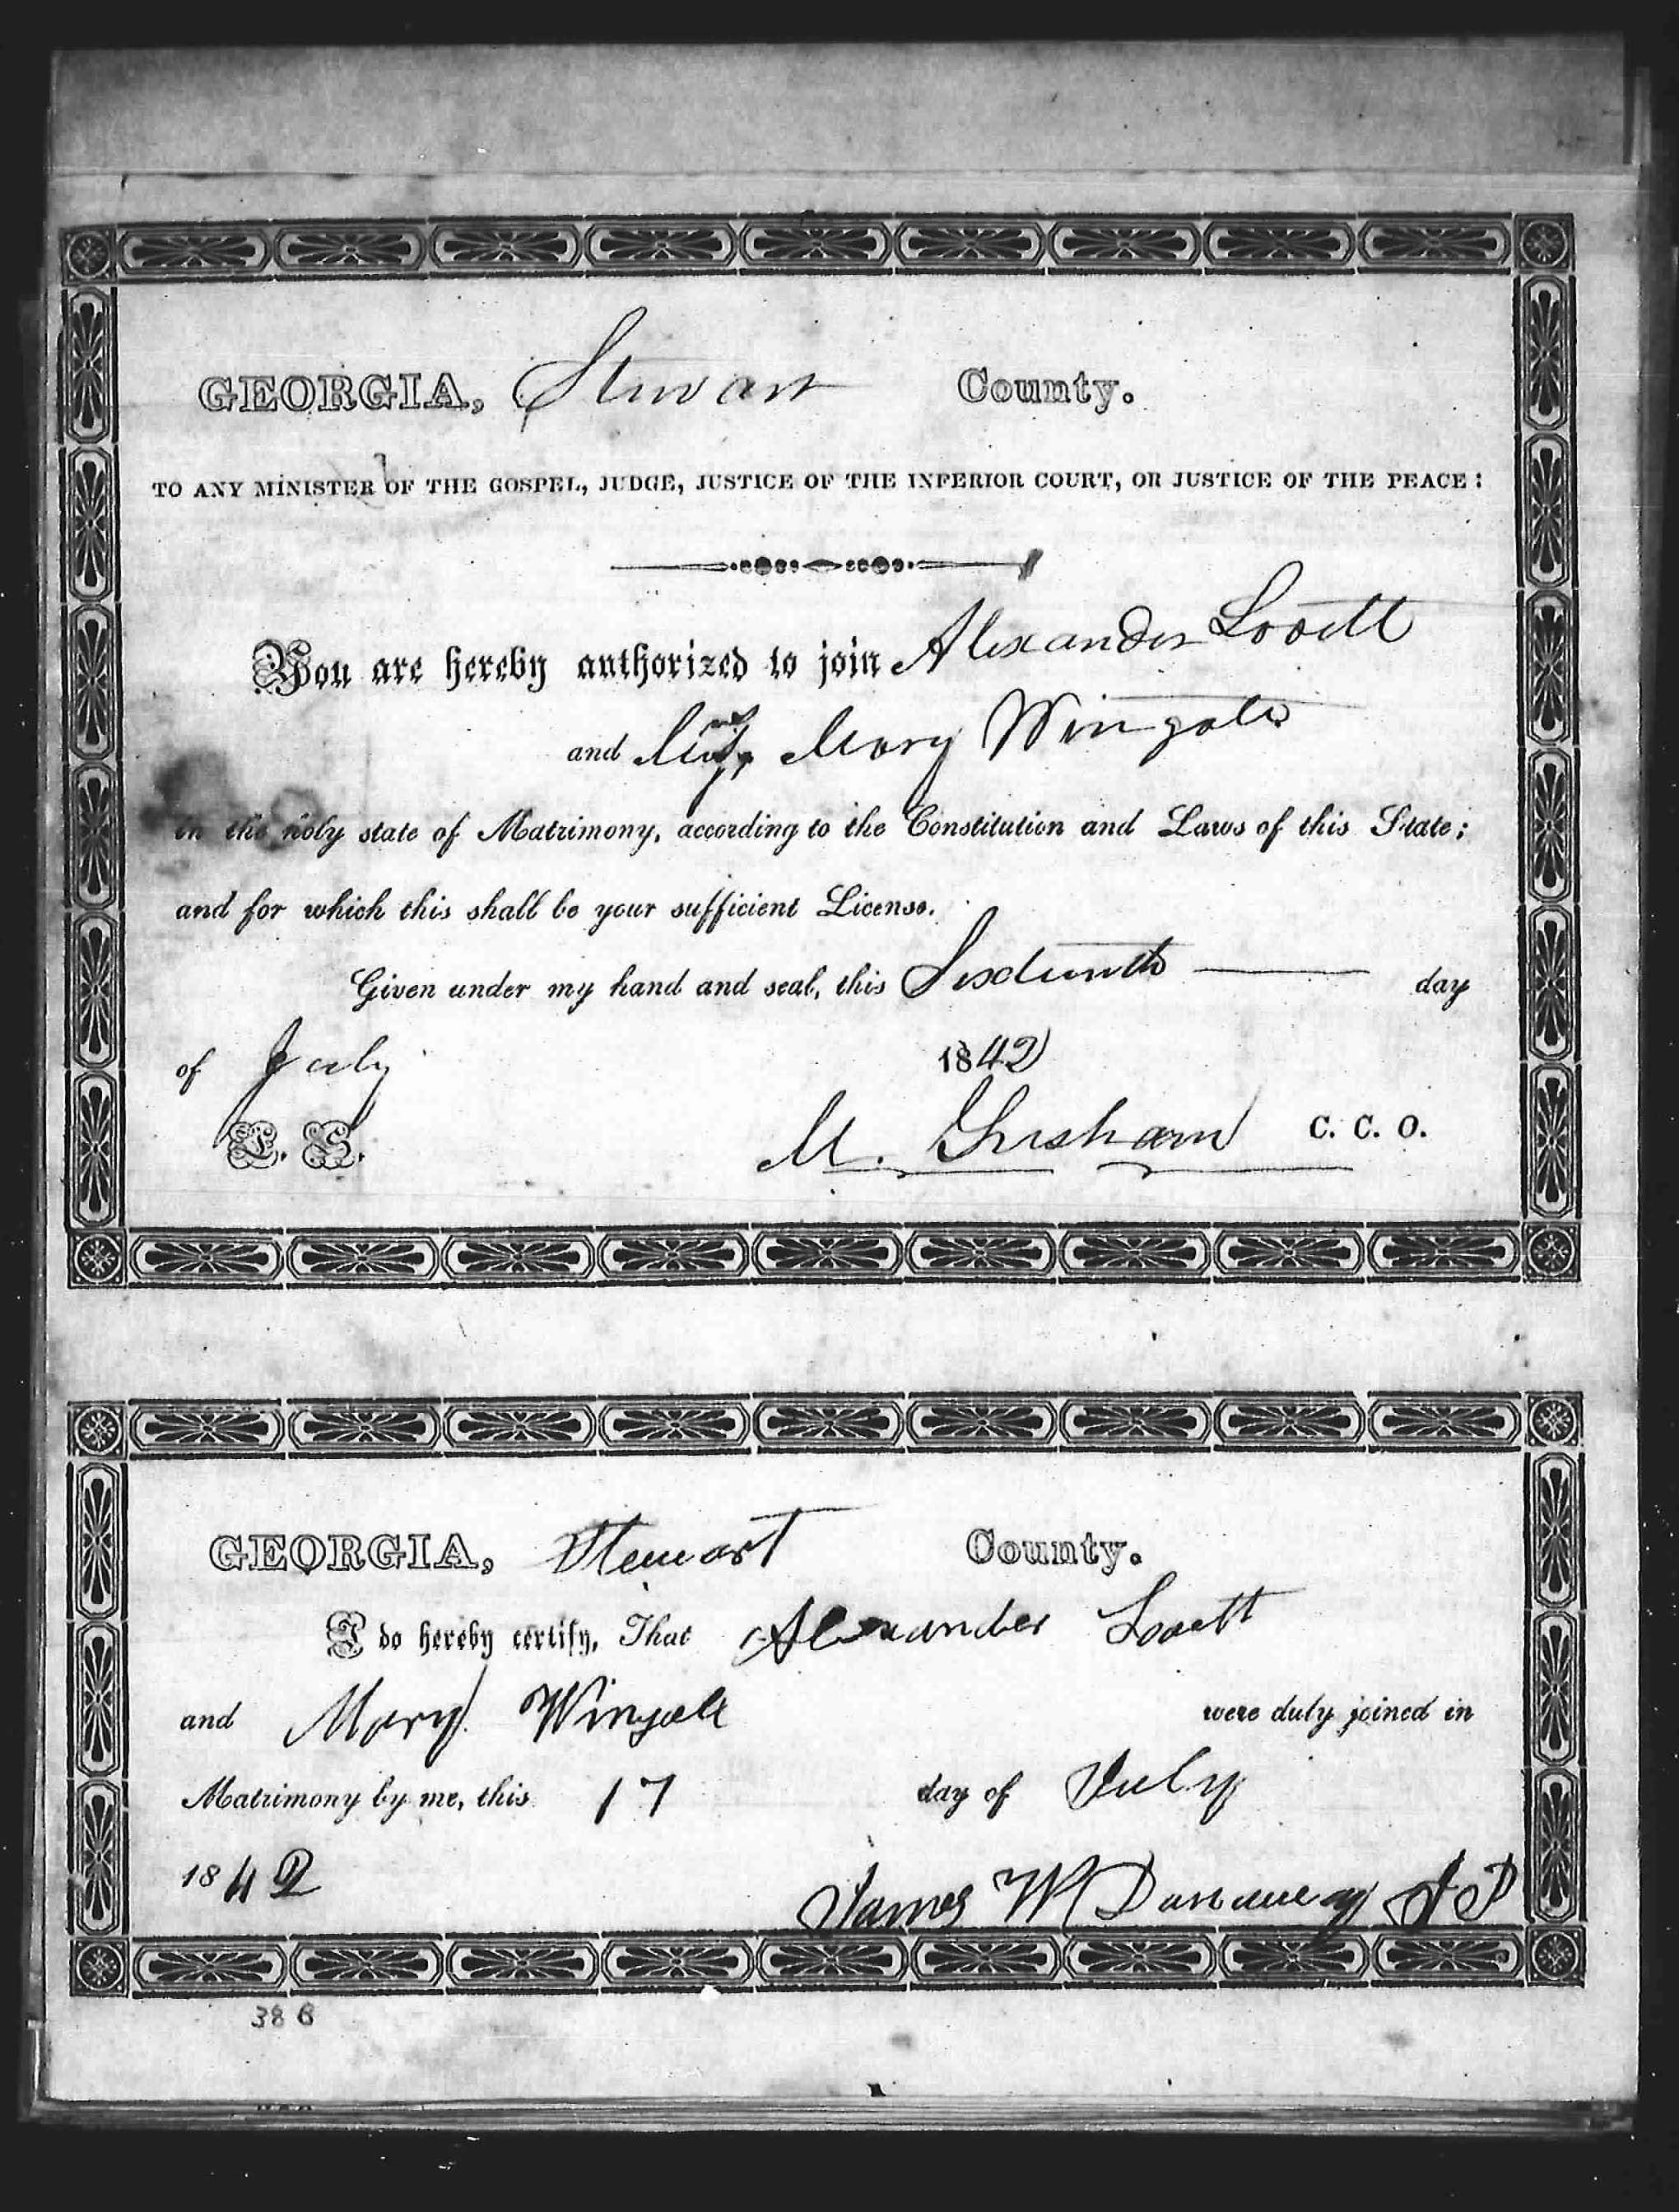 GEORGIA, Stewart County.
TO ANY MINISTER OF THE GOSPEL, JUDGE, JUSTICE OF THE INFERIOR COURT, OR JUSTICE OF THE PEACE:
You are hereby authorized to join Alexander Lovett
and Mary Wingate
in the holy state of Matrimony, according to the Constitution and Laws of this State;
and for which this shall be your sufficient License.
Given under my hand and seal, this Sixteenth day
of July 1842
L. S. M. Gresham C. C. O.
GEORGIA, Stewart County.
I do hereby certify, That Alexander Lovett
and Mary Wingate were duly joined in
Matrimony by me, this 17 day of July
1842
James W Dunaway J P
38 B